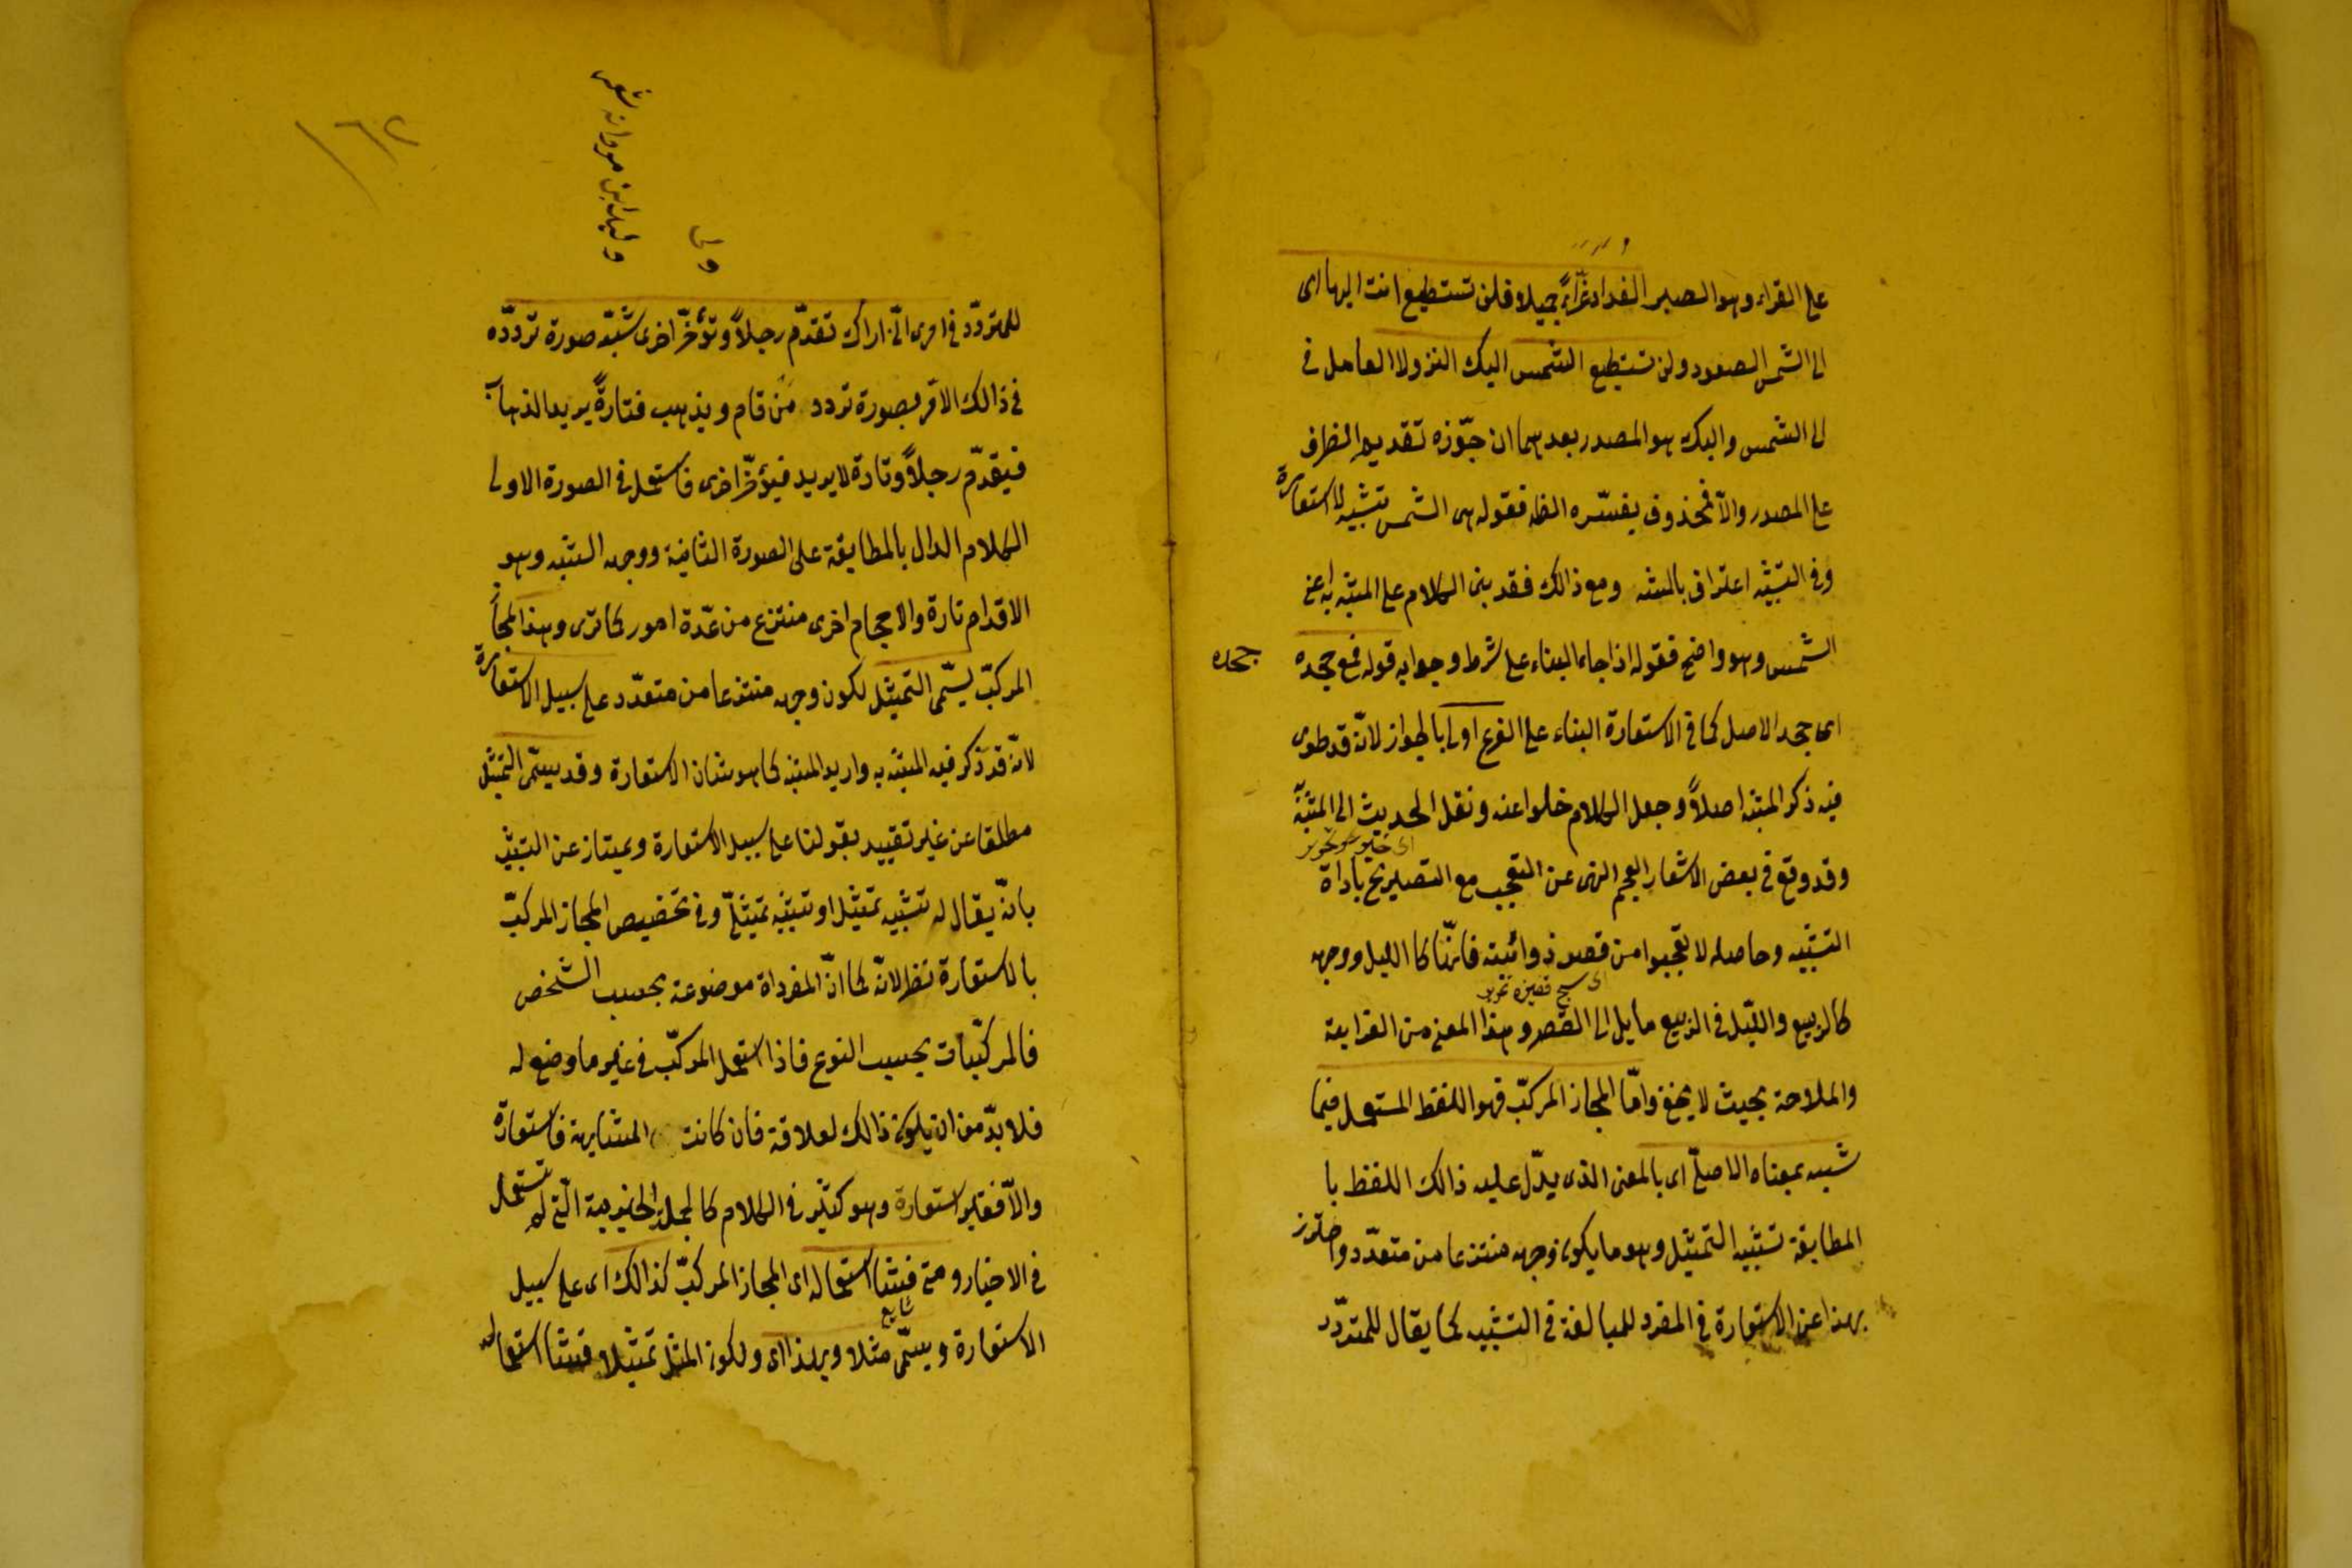 على القراء وهو الصبر الفداد عزاءً جميلا فلن تستطيع انت اليها اى
الى الشمس الصعود ولن تستطيع الشمس اليك النزولا العامل فى
الى الشمس واليك هو المصدر بعدهما ان جوّزه تقديم الظرف
على المصدر والاّ فمحذوف يفسّره الظه فقوله هى الشمس تشبيه لا استعارة
وفى التشبيه اعتراف بالمشبه ومع ذالك فقد بنى الكلام على المشبه به اعنى
الشمس وهو واضح فقوله اذا جاء البناء على شرط وجوابه قوله فمع جحده
جحده
اى جحد الاصل كما فى الاستعارة البناء على الفرع اولى بالجواز لانّه قد طوى
فيه ذكر المشبه اصلاً وجعل الكلام خلوا عنه ونقل الحديث الى المشبّه
وقد وقع فى بعض الاشعار العجم النهى عن التعجب مع التصريح باداة
التشبيه وحاصله لا تعجبوا من قصر ذوائبه فانّها كا الليل ووجهه
كالربيع والليّل فى الربيع مايل الى القصر وهذا المعنى من الغرابة
والملاحة بحيث لا يخفى وامّا المجاز المركبّ فهو اللفظ المستعمل فيما
شبه بمعناه الاصلّى اى بالمعنى الذى يدّل عليه ذالك اللفظ با
المطابقة تشبيه التمثيل وهو ما يكون وجهه منتزعا من متعدّد واحترز
بهذا عن الاستعارة فى المفرد للمبالغة فى التشبيه كما يقال للمتردّد
وليد ابن مروانه
ولى
للمتردّد فى امرى انّى اراك تقدّم رجلاً وتؤخّر اخرى شبّه صورة تردّده
فى ذالك الامر بصورة تردد من قام ويذهب فتارةً يريد الذهاب
فيقدّم رجلاً وتارة لا يريد فيؤخّر اخرى فاستعمل فى الصورة الاولى
الكلام الدال بالمطابقة على الصورة الثانية ووجه الشبه وهو
الاقدام تارة والاحجام اخرى منتزع من عدّة امور كما ترى وهذا المجاز
المركبّ يسّمى التمثيل لكون وجهه منتزعا من متعدّد على سبيل الاستعارة
لانّه قد ذكر فيه المشبّه به واريد المشبه كما هو شان الاستعارة وقد يسمّى التمثيل
مطلقا عن غير تقييد بقولنا على سبيل الاستعارة ويمتاز عن التشبيه
بانّه يقال له تشبيه تمثيل او تشبيه تمثيلّى وفى تخصيص المجاز المركبّ
بالاستعارة نظر لانّه كما انّ المفرداة موضوعة بحسب الشخص
فالمركبّات بحسب النوع فاذا استعمل المركبّ فى غير ما وضع له
فلا بدّ من ان يكون ذالك لعلاقة فان كانت المشابهة فاستعارة
والاّ فغير استعارة وهو كثير فى الكلام كالجملة الخبرية الّتى لم تستعمل
فى الاخبار ومتى فشا استعماله اى المجاز المركبّ كذالك اى على سبيل
شايع
الاستعارة ويسمّى مثلا ولهذا اى ولكون المثل تمثيلا فشا استعماله